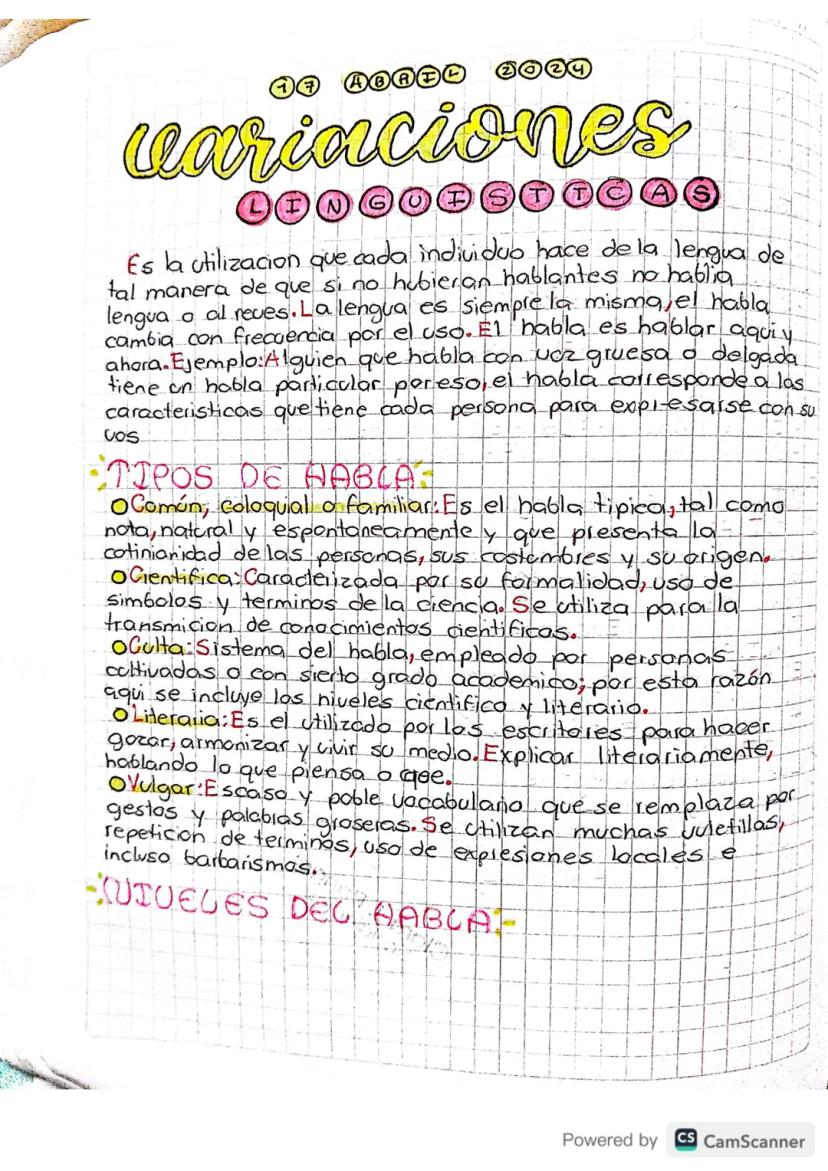 17 ABRIL 2024
variaciones
LINGUISTICAS
Es la utilizacion que cada individuo hace de la lengua de
tal manera de que si no hubieran hablantes no hablia
lengua o al reves. La lengua es siempre la misma, el habla
cambia con frecuencia por el uso. El habla es hablar aqui y
ahora. Ejemplo: Alguien que habla con voz gruesa o delgada
tiene un habla particular por eso, el habla corresponde a las
caracteristicas que tiene cada persona para expresarse con su
vos
TIPOS DE HABLA
Común, coloquial o familiar: Es el habla tipica, tal como
nota, natural y espontaneamente y que presenta la
cotinianidad de las personas, sus costumbres y su origen.
Cientifica: Caracterizada por su formalidad, uso de
simbolos y terminos de la ciencia. Se utiliza para la
transmicion de conocimientos cientificos.
Culta: Sistema del habla, empleado por personas
cultivadas o con sierto grado academico; por esta razón
aqui se incluye los niveles cientifico y literario.
Literaria: Es el utilizado por los escritores para hacer
gozar, armonizar y vivir su medio. Explicar literariamente,
hablando lo que piensa o cree.
Vulgar: Escaso y poble vocabulario que se remplaza por
gestos y palabras groseras. Se utilizan muchas muletillas,
repeticion de terminos, uso de expresiones locales e
incluso barbarismos.
NIVELES DEL HABLA
Powered by CS CamScanner